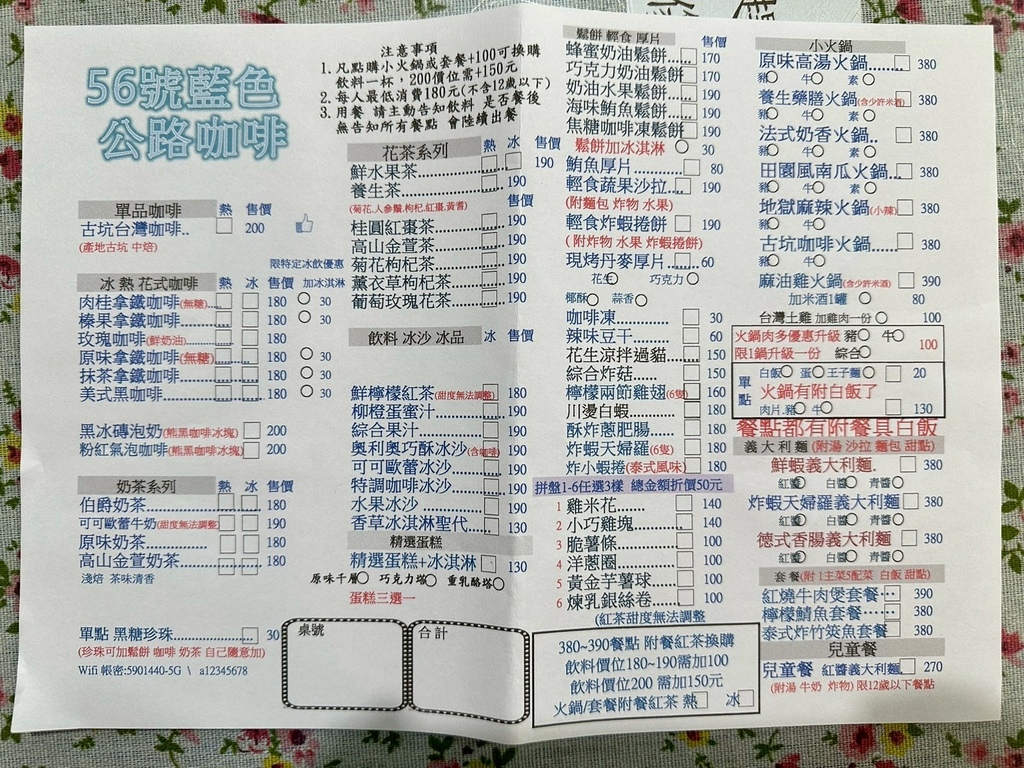 56號藍色
公路咖啡
注意事項
1. 凡點購小火鍋或套餐+100可換購
飲料一杯，200價位需+150元
2. 每人最低消費180元(不含12歲以下)
3. 用餐 請主動告知飲料 是否餐後
無告知所有餐點 會陸續出餐
單品咖啡 熱 售價
古坑台灣咖啡.. 200
(產地古坑 中焙)
限特定冰飲優惠
冰 熱 花式咖啡 熱 冰 售價 加冰淇淋
肉桂拿鐵咖啡(無糖)... 180 30
榛果拿鐵咖啡 180 30
玫瑰咖啡(鮮奶油) 180
原味拿鐵咖啡(無糖) 180 30
抹茶拿鐵咖啡 180 30
美式黑咖啡 180 30
黑冰磚泡奶(熊黑咖啡冰塊) 200
粉紅氣泡咖啡(熊黑咖啡冰塊) 200
奶茶系列 熱 冰 售價
伯爵奶茶 180
可可歐蕾牛奶(甜度無法調整) 190
原味奶茶 180
高山金萱奶茶 180
淺焙 茶味清香
單點 黑糖珍珠 30
(珍珠可加鬆餅 咖啡 奶茶 自己隨意加)
Wifi 帳密:5901440-5G \ a12345678
花茶系列 熱 冰 售價
鮮水果茶 190
養生茶 190
(菊花.人參鬚.枸杞.紅棗.黃耆) 售價
桂圓紅棗茶 190
高山金萱茶 190
菊花枸杞茶 190
薰衣草枸杞茶 190
葡萄玫瑰花茶 190
飲料 冰沙 冰品 冰 售價
鮮檸檬紅茶(甜度無法調整) 180
柳橙蜜汁 190
綜合果汁 190
奧利奧巧酥冰沙(含咖啡) 190
可可歐蕾冰沙 190
特調咖啡冰沙 190
水果冰沙 190
香草冰淇淋聖代 130
精選蛋糕
精選蛋糕+冰淇淋 130
原味千層 巧克力塔 重乳酪塔
蛋糕三選一
桌號
合計
鬆餅 輕食 厚片 售價
蜂蜜奶油鬆餅 170
巧克力奶油鬆餅 170
奶油水果鬆餅 190
海味鮪魚鬆餅 190
焦糖咖啡凍鬆餅 190
鬆餅加冰淇淋 30
鮪魚厚片 80
輕食蔬果沙拉 190
(附麵包 炸物 水果)
輕食炸蝦捲餅 190
(附炸物 水果 炸蝦捲餅)
現烤丹麥厚片 60
花生 巧克力
椰酥 蒜香
咖啡凍 30
辣味豆干 60
花生涼拌過貓 150
綜合炸菇 150
檸檬兩節雞翅(6隻) 160
川燙白蝦 180
酥炸蔥肥腸 180
炸蝦天婦羅(6隻) 180
炸小蝦捲(泰式風味) 180
拼盤1-6任選3樣 總金額折價50元
1 雞米花 140
2 小巧雞塊 140
3 脆薯條 100
4 洋蔥圈 100
5 黃金芋薯球 100
6 煉乳銀絲卷 100
(紅茶甜度無法調整
380~390餐點 附餐紅茶換購
飲料價位180~190需加100
飲料價位200 需加150元
火鍋/套餐附餐紅茶 熱 冰
小火鍋
原味高湯火鍋 380
豬 牛 素
養生藥膳火鍋(含少許米酒) 380
豬 牛 素
法式奶香火鍋.. 380
豬 牛 素
田園風南瓜火鍋 380
豬 牛
地獄麻辣火鍋(小辣) 380
豬 牛
古坑咖啡火鍋 380
豬 牛
麻油雞火鍋(含少許米酒) 390
加米酒1罐 80
台灣土雞 加雞肉一份 100
火鍋肉多優惠升級 豬 牛
限1鍋升級一份 綜合 100
單點
白飯 蛋 王子麵 20
火鍋有附白飯了
肉片.豬 牛 130
餐點都有附餐具白飯
義大利麵 (附湯 沙拉 麵包 甜點)
鮮蝦義大利麵. 380
紅醬 白醬 青醬
炸蝦天婦羅義大利麵 380
紅醬 白醬 青醬
德式香腸義大利麵 380
紅醬 白醬 青醬
套餐(附 1主菜5配菜 白飯 甜點)
紅燒牛肉煲套餐 390
檸檬鯖魚套餐 380
泰式炸竹筴魚套餐 380
兒童餐
兒童餐 紅醬義大利麵 270
(附湯 牛奶 炸物) 限12歲以下餐點